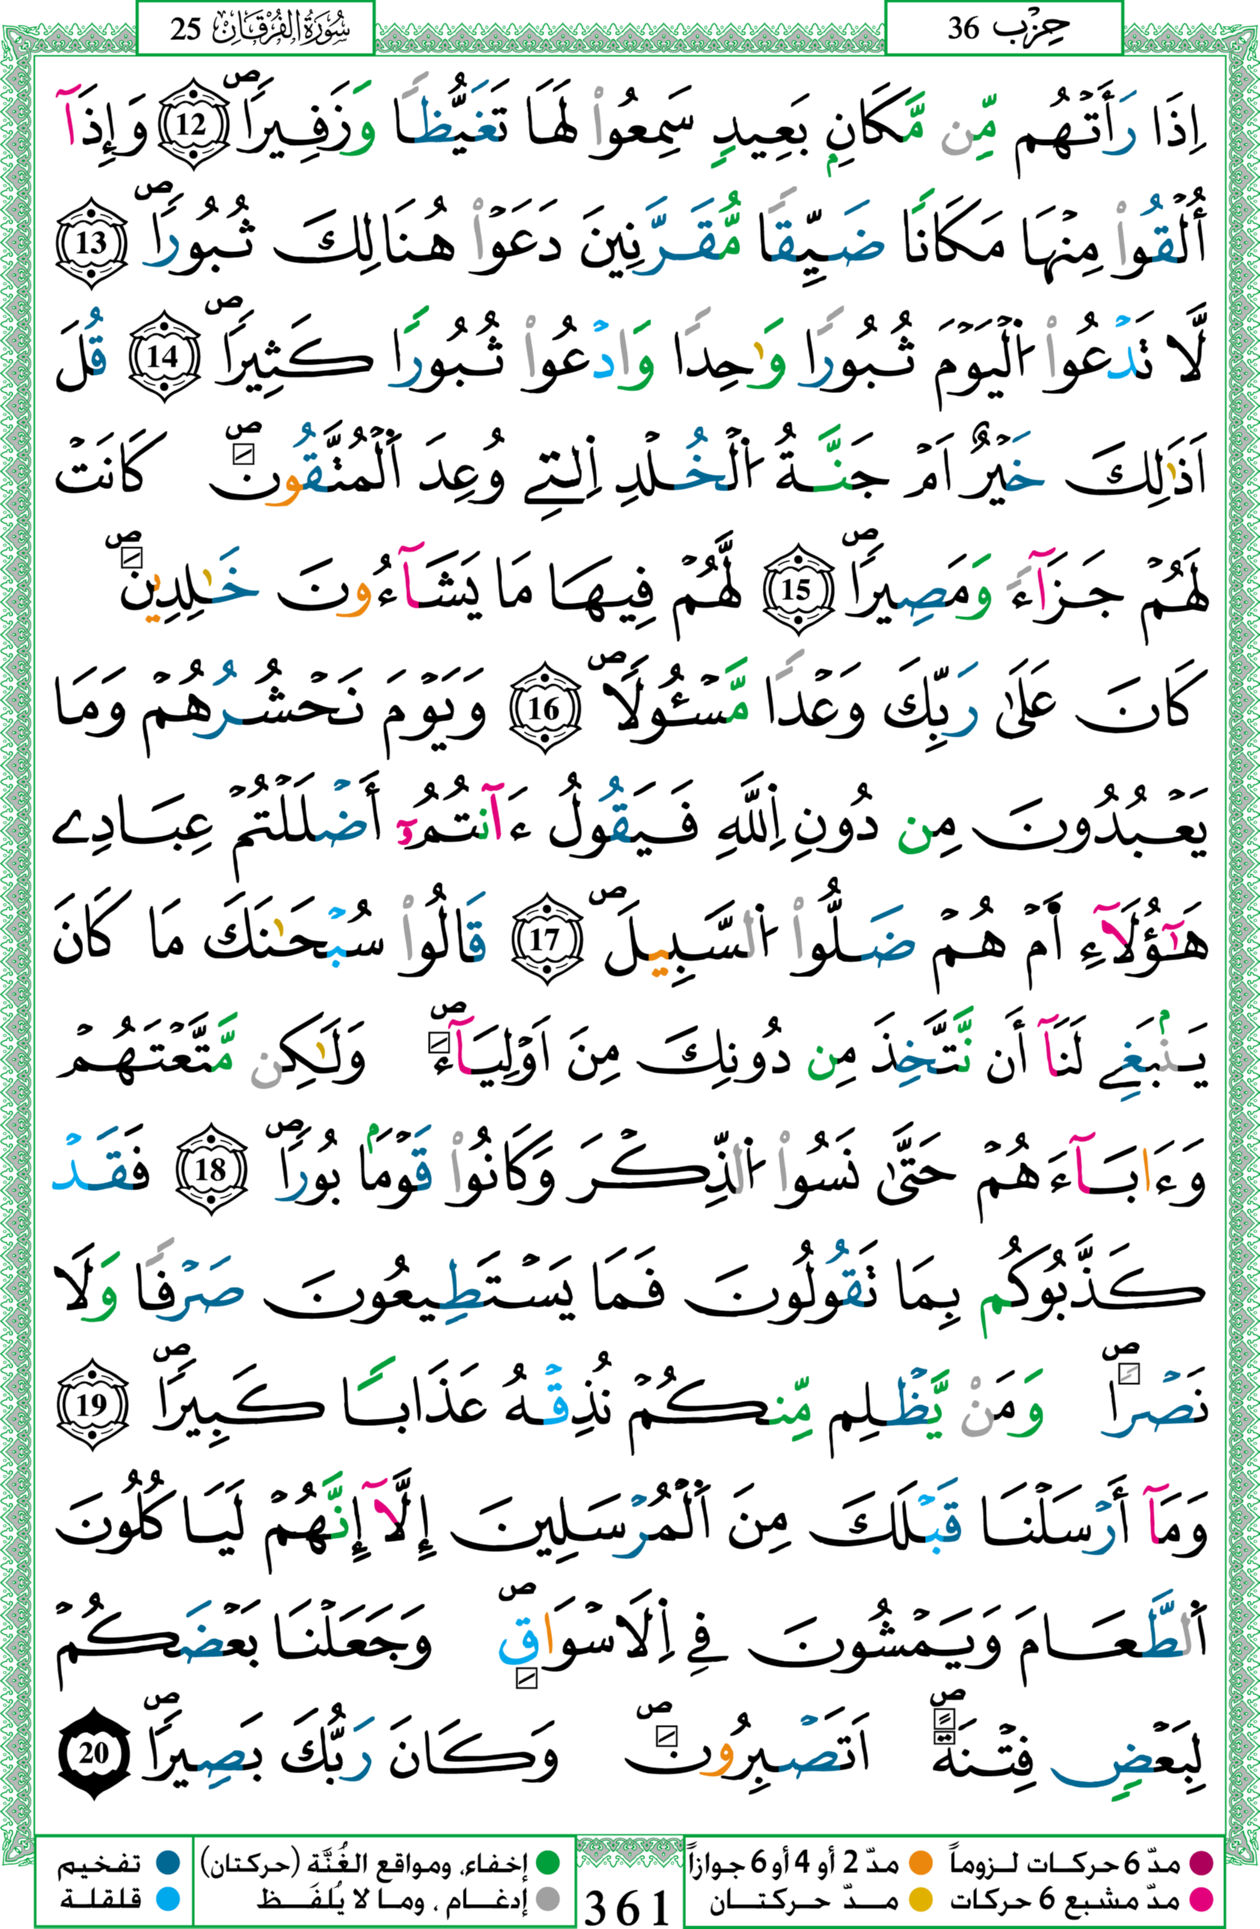 حِزْب 36
سُورَةُ الْفُرْقَانِ 25
اِذَا رَأَتْهُم مِّن مَّكَانِۢ بَعِيدٖ سَمِعُواْ لَهَا تَغَيُّظاٗ وَزَفِيراٗۖ 12 وَإِذَآ
أُلْقُواْ مِنْهَا مَكَاناٗ ضَيِّقاٗ مُّقَرَّنِينَ دَعَوْاْ هُنَالِكَ ثُبُوراٗۖ 13
لَّا تَدْعُواْ اُ۬لْيَوْمَ ثُبُوراٗ وَٰحِداٗ وَادْعُواْ ثُبُوراٗ كَثِيراٗۖ 14 قُلَ
اَذَٰلِكَ خَيْرٌ اَمْ جَنَّةُ اُ۬لْخُلْدِ اِ۬لتِے وُعِدَ اَ۬لْمُتَّقُونَۖ كَانَتْ
لَهُمْ جَزَآءٗ وَمَصِيراٗۖ 15 لَّهُمْ فِيهَا مَا يَشَآءُونَ خَٰلِدِينَۖ
كَانَ عَلَىٰ رَبِّكَ وَعْداٗ مَّسْـُٔولاٗۖ 16 وَيَوْمَ نَحْشُرُهُمْ وَمَا
يَعْبُدُونَ مِن دُونِ اِ۬للَّهِ فَيَقُولُ ءَآنتُمُۥٓ أَضْلَلْتُمْ عِبَادِے
هَٰٓؤُلَآءِ اَ۬مْ هُمْ ضَلُّواْ اُ۬لسَّبِيلَۖ 17 قَالُواْ سُبْحَٰنَكَ مَا كَانَ
يَنۢبَغِے لَنَآ أَن نَّتَّخِذَ مِن دُونِكَ مِنَ اَوْلِيَآءَۖ وَلَٰكِن مَّتَّعْتَهُمْ
وَءَابَآءَهُمْ حَتَّىٰ نَسُواْ اُ۬لذِّكْرَ وَكَانُواْ قَوْماَۢ بُوراٗۖ 18 فَقَدْ
كَذَّبُوكُم بِمَا تَقُولُونَ فَمَا يَسْتَطِيعُونَ صَرْفاٗ وَلَا
نَصْراٗۖ وَمَنْ يَّظْلِم مِّنكُمْ نُذِقْهُ عَذَاباٗ كَبِيراٗۖ 19
وَمَآ أَرْسَلْنَا قَبْلَكَ مِنَ اَ۬لْمُرْسَلِينَ إِلَّآ إِنَّهُمْ لَيَاكُلُونَ
اَ۬لطَّعَامَ وَيَمْشُونَ فِي اِ۬لَاسْوَاقِۖ وَجَعَلْنَا بَعْضَكُمْ
لِبَعْضٖ فِتْنَةًۖ اَتَصْبِرُونَۖ وَكَانَ رَبُّكَ بَصِيراٗۖ 20
مدّ 6 حركات لـزوماً مدّ 2 أو 4 أو 6 جوازاً
مدّ مشبع 6 حركات مـدّ حـركتـان
إخفاء، ومواقع الغُنَّة (حركتان) تفخيم
إدغـام ، ومـا لا يُلفَـظ قلقلـة
361